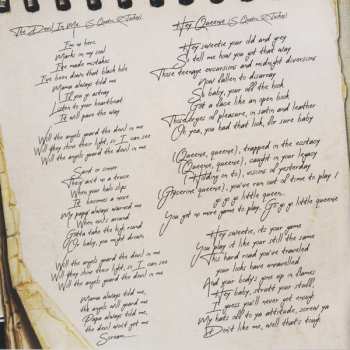 The Devil In Me (S. Quatro, R. Tuckey)
I'm so bare
Marks in my soul
I've made mistakes
I've been down that black hole
Mama always told me
If you go astray
Listen to your heartbeat
It will pave the way
Will the angels guard the devil in me
Will they shine their light, so I can see
Will the angels guard the devil in me
Saint or sinner
They exist in a truce
When your halo slips
It becomes a noose
My papa always warned me
When evil's around
Gotta take the high road
Or baby, you might drown
Will the angels guard the devil in me
Will they shine their light, so I can see
Will the angels guard the devil in me
Mama always told me,
the angels will guard me
Papa always told me,
the devil won't get me
Scream
Hey Queenie (S. Quatro, R. Tuckey)
Hey sweetie your old and grey
So tell me how you got that way
Those teenage excursions and midnight diversions
Now fallen to disarray
So baby, your off the hook
Got a face like an open book
Those of pleasure, in satin and leather
Oh yea, you had that look, for sure baby
(Queenie, queenie), trapped in the ecstasy
(Queenie, queenie), caught in your legacy
(Holding on to), visions of yesterday
(Glycerine queenie), you've run out of time to play !
g g g little queen
You got no more game to play. Go g g g little queenie
Hey sweetie, its your game
You play it like your still the same
This hard road you've travelled
your locks have unravelled
And your body's gone up in flames
Hey baby, strutt your stuff,
I guess you'll never get enough
My hats off to ya attitude, screw ya
Don't like me, well that's tough